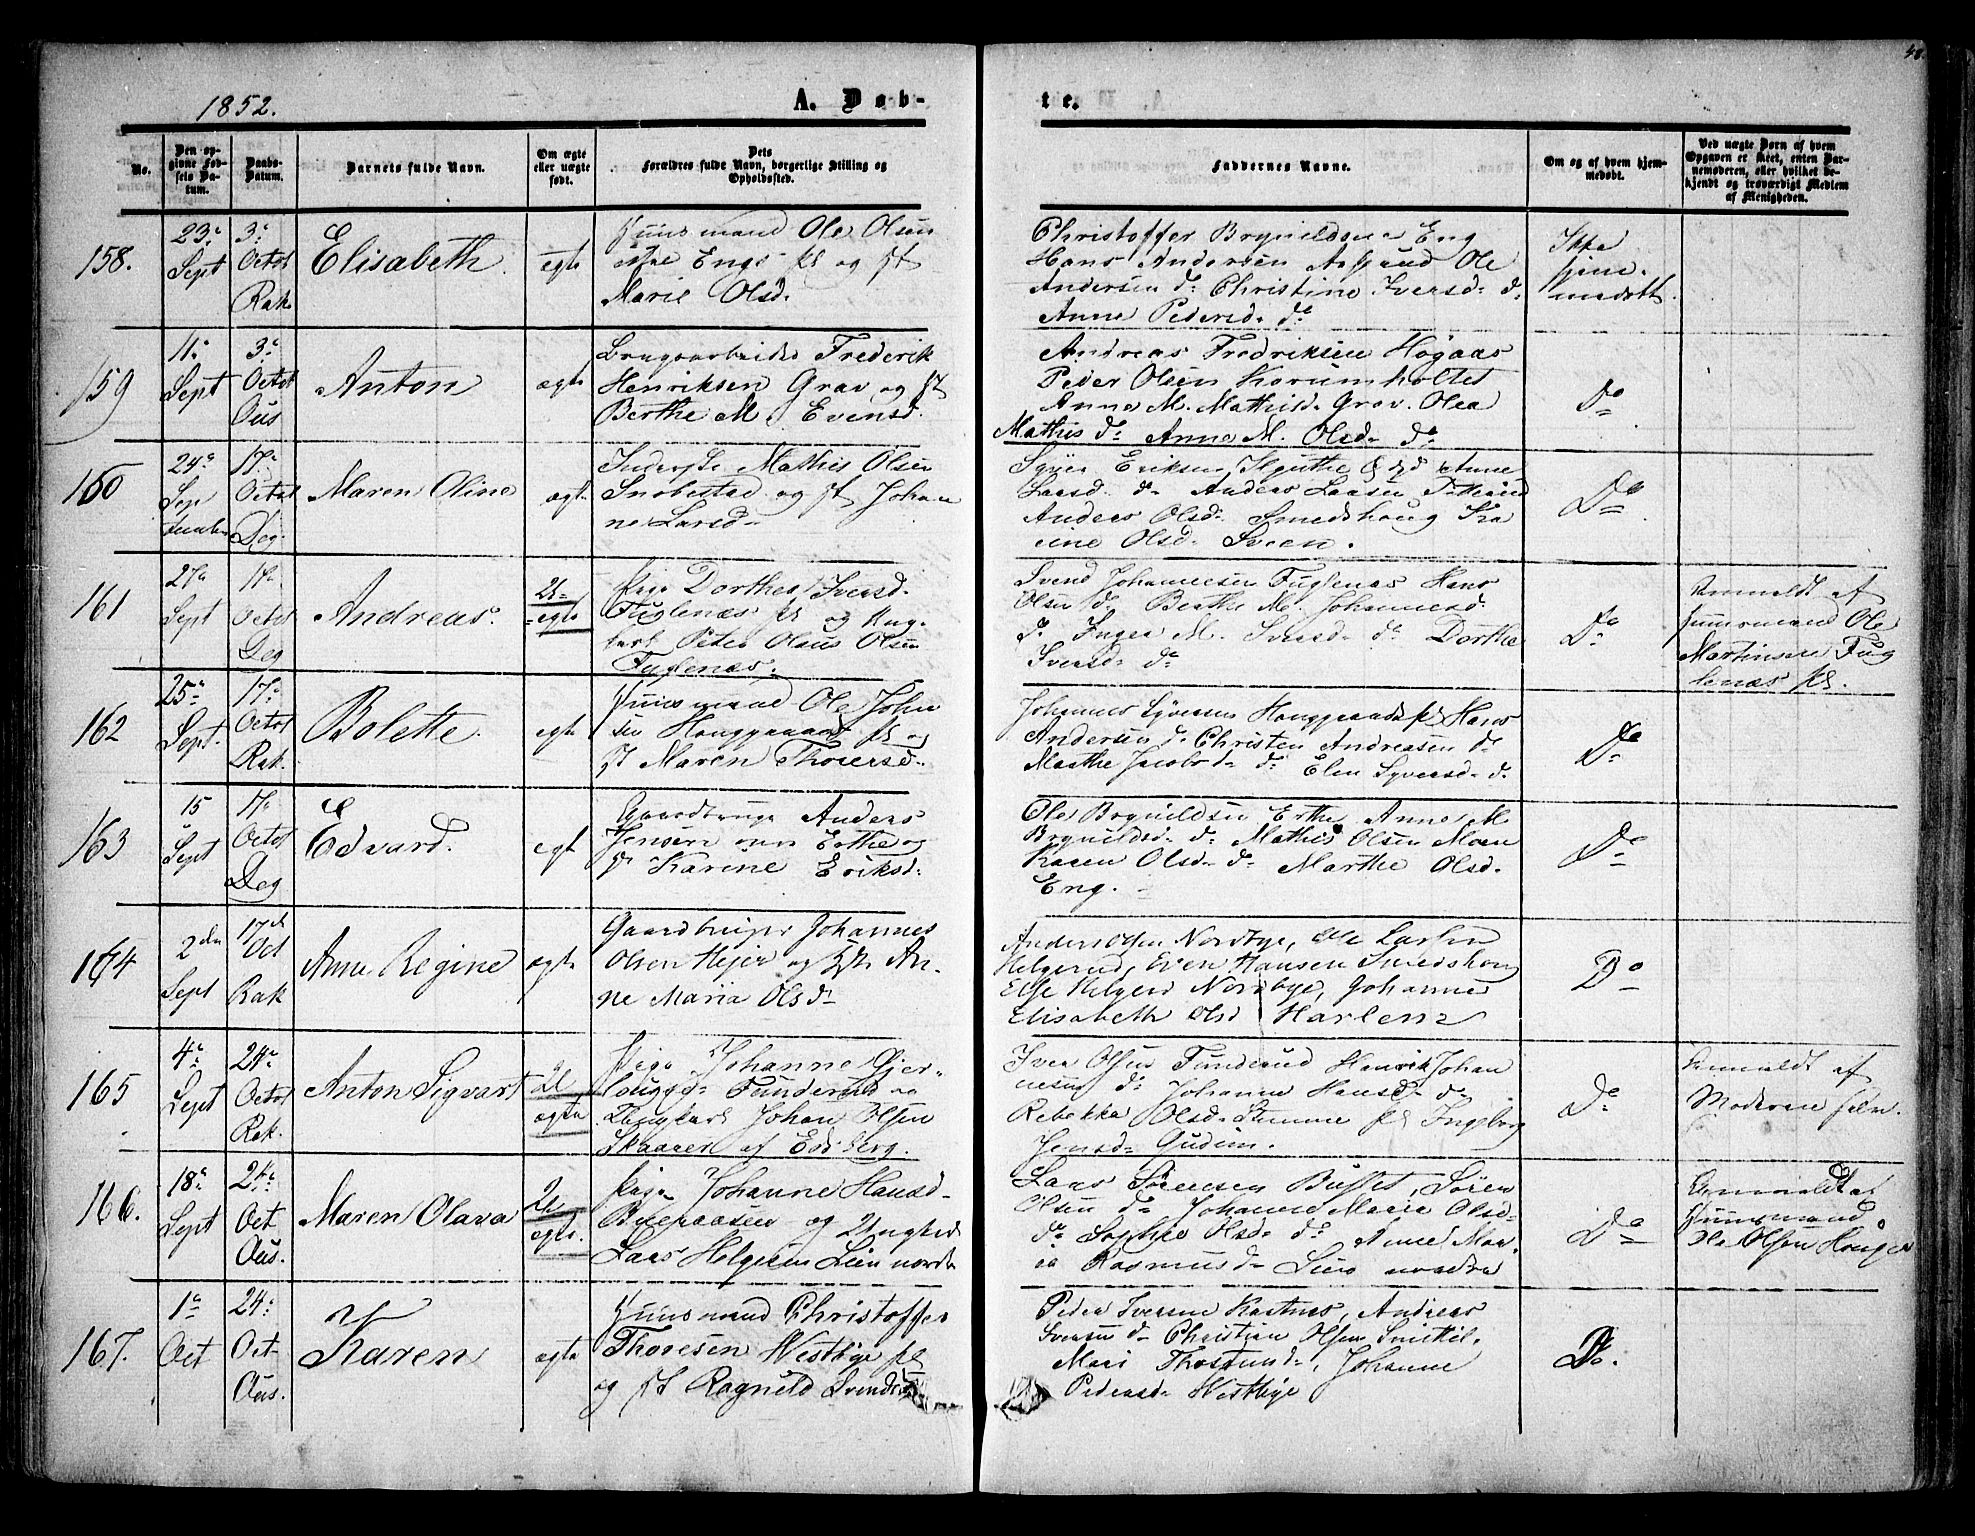 48.
1852.
A. Døb-
te.
No.
Den op-
givne Fød-
sels Da-
tum.
Daabs-
Datum.
Barnets fulde Navn.
Om ægte
eller uægte
født.
Dets
Forældres fulde Navn, borgerlige Stilling og
Opholdssted.
Faddernes Navne.
Om og af hvem hjem-
medøbt.
Ved uægte Børn af hvem
Opgaven er skeet, enten Bar-
nemoderen, eller hvilket be-
kjendt og troværdigt Medlem
af Menigheden.
158.
23.
Sept
3.
Octob
Rak.
Elisabeth
egte
Huusmand Ole Olsen
Enge pl og H
Marie Olsd.
Christoffer Brynildsen Eng
Hans Andersen Ole
Andersen d: Christine Iversd. d:
Anne Pedersd. d:
Ikke
hjem-
medøbt.
159
11.
Sept
3.
Octob
Ous
Anton
ægte
Brugsarbeider Frederik
Henriksen Grav og H
Berthe M. Evensd.
Andreas Fredriksen Høgaas
Peder Olsen Korumholtet
Anne M. Mathisd. Grav. Olea
Mathis d: Anne M. Olsd. d:
Do
160
24.
Sep
tember
17.
Octob
Deg.
Maren Oline
ægte
Inderste Mathis Olsen
Snobestad og H Johan
ne Larsd.
Eriksen Anne
Larsd. d: Anders Larsen
Anders Olsd. Smedshoug Ka
rine Olsd. Sveen.
Do
161
27.
Sept
17.
Octob
Deg
Andreas.
U-
egte
Pige Dorthea Iversd.
Fuglenæs pl og Ung-
karl Peter Olaus Olsen
Fuglenæs.
Svend Johannesen Fuglenæs Hans
Olsen d: Berthe M. Johannesd.
d: Inger M. Iversd. d: Dorthe
Iversd. d:
Do
Anmeldt af
Huusmand Ole
Martinsen Fug
lenæs pl.
162
25.
Sept.
17.
Octob
Rak.
Bolette
egte
Huusmand Ole Johan
sen Houggaard pl og
H Maren Thorersd.
Johannes Syversen Houggaards pl Hans
Andersen d: Christen Andreasen d:
Marthe Jacobsd. d: Elen Syversd. d:
Do
163
15
Sept
17.
Octob
Deg
Edvard.
egte
Gaardbruger Anders
Jensen Erthe og
H Karine Eriksd.
Ole Brynildsen Erthe Anne M
Brynildsd. d: Mathis Olsen Moen
Karen Olsd. d: Marthe Olsd.
Eng.
Do
164
2den
Sept
17d
Oct
Rak
Anne Regine
ægte
Gaardbruger Johannes
Olsen Hejer og H An-
ne Maria Olsd
Anders Olsen Nordbye, Ole Larsen
Helgerud, Even Hansen Smedshoug
Else Helgers Nordbye, Johanne
Elisabeth Olsd Harlem
Do
165
4.
Sept
24.
Octob
Rak.
Anton Sigvart
U
ægte
Pige Johanne Gjer-
Tunderud og
Ungkarl Johan Olsen
Skaaren af Eidsberg.
Iver Olsen Tunderud Henrik Johan
nesen d: Johanne Hansd. d:
Rebekka Olsd. Stumme pl Ingeborg
Jensd. Gudem.
Do
Anmeldt af
Moderen selv.
166.
18.
Sept
24.
Oct
Ous.
Maren Olava
U
egte.
Pige Johanne Hansd.
og Ungkarl
Lars Helgesen Lien nordre
Lars Sørensen Buffet, Søren
Olsen d: Johanne Marie Olsd.
d: Sophie Olsd. d: Anne Mar-
ia Rasmusd. Lien nordre
Do
Anmeldt af
Huusmand
Ole Olsen Hougen
167.
1.
Oct
24.
Oct
Ous.
Karen
ægte
Huusmand Christoffer
Thoresen Westbye pl
og H Ragnild Svends
Peder Iversen Kastnes, Andreas
Iversen d: Christian Olsen
Mari Johanne
Pedersd. Westbye
Do.